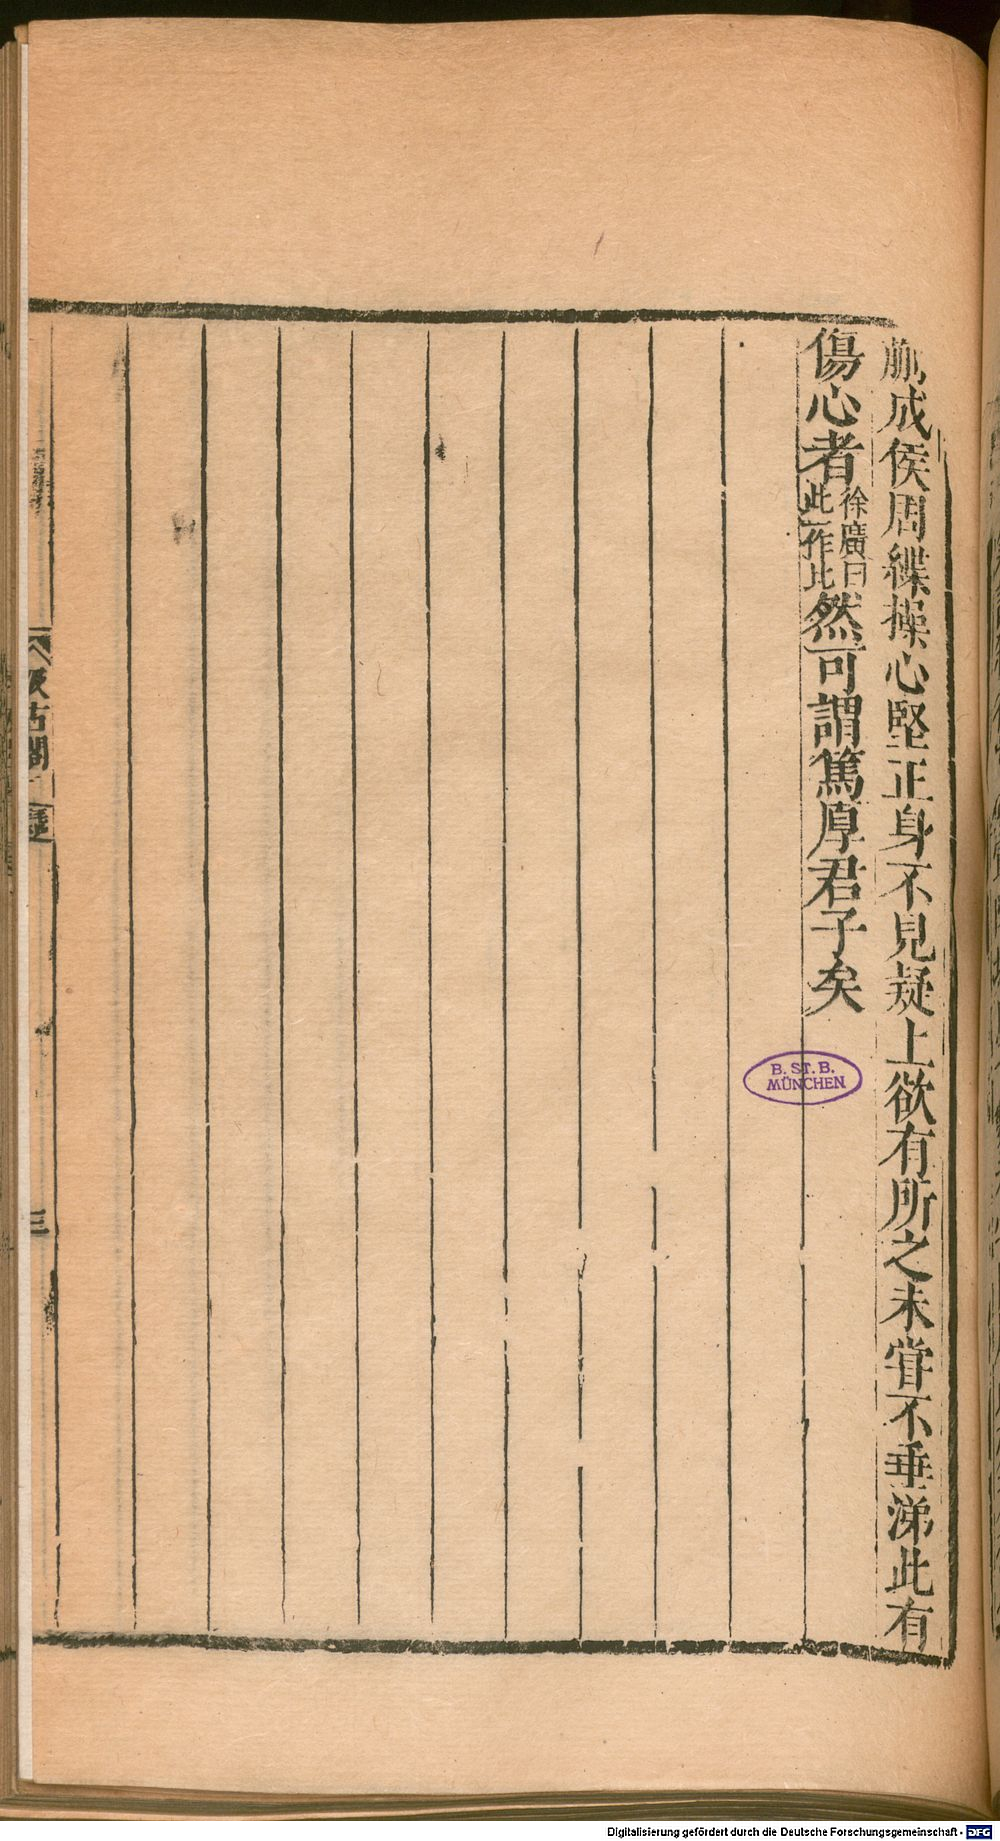 蒯成侯周緤操心堅正身不見疑上欲有所之未嘗不垂涕此有
傷心者
徐廣曰
此一作比
然可謂篤厚君子矣
汲古閣
三
B. ST. B.
MÜNCHEN
Digitalisierung gefördert durch die Deutsche Forschungsgemeinschaft - DFG